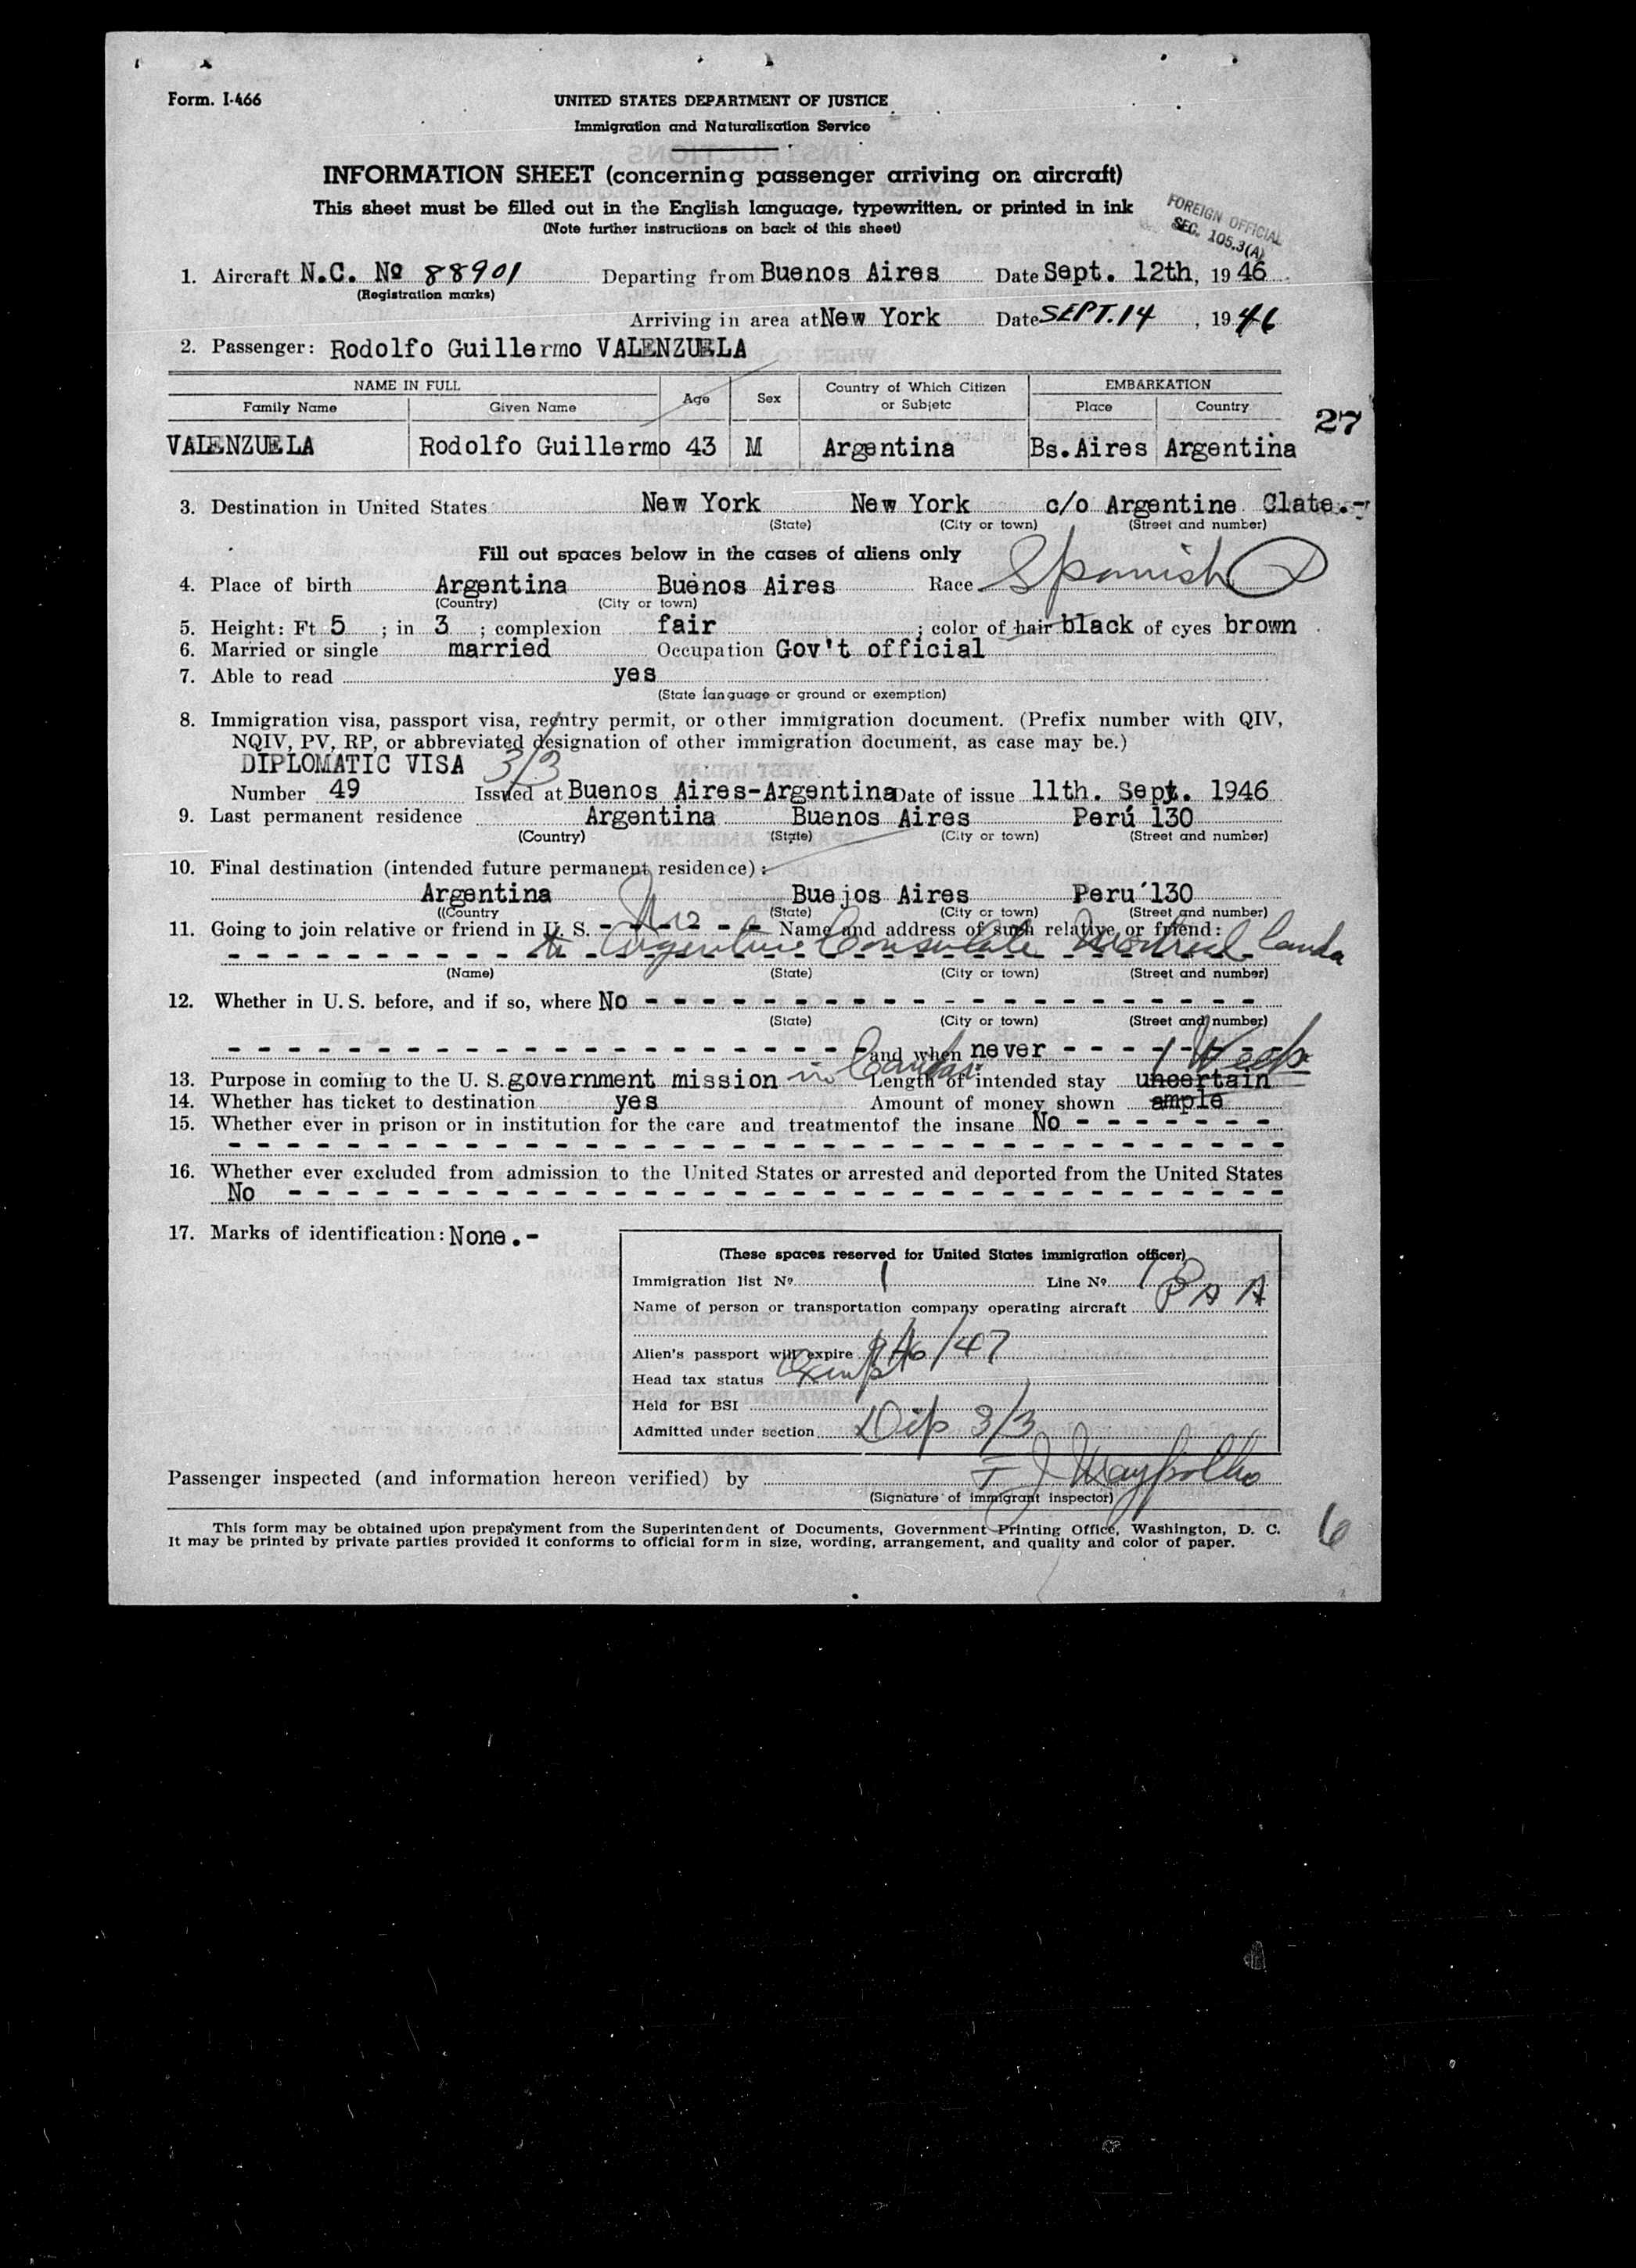 Form. I-466
UNITED STATES DEPARTMENT OF JUSTICE
Immigration and Naturalization Service
INFORMATION SHEET (concerning passenger arriving on aircraft)
This sheet must be filled out in the English language, typewritten, or printed in ink
(Note further instructions on back of this sheet)
FOREIGN OFFICIAL
SEC. 105.3(A)
1. Aircraft N.C. Nº 88901 Departing from Buenos Aires Date Sept. 12th, 1946
(Registration marks)
Arriving in area at New York Date SEPT. 14, 1946
2. Passenger: Rodolfo Guillermo VALENZUELA
NAME IN FULL Age Sex Country of Which Citizen or Subjetc EMBARKATION
Family Name Given Name Place Country
27
VALENZUELA Rodolfo Guillermo 43 M Argentina Bs.Aires Argentina
3. Destination in United States New York New York c/o Argentine Clate.-
(State) (City or town) (Street and number)
Fill out spaces below in the cases of aliens only
4. Place of birth Argentina Buenos Aires Race Spanish
(Country) (City or town)
5. Height: Ft 5 ; in 3 ; complexion fair ; color of hair black of eyes brown
6. Married or single married Occupation Gov't official
7. Able to read yes
(State language or ground or exemption)
8. Immigration visa, passport visa, reentry permit, or other immigration document. (Prefix number with QIV,
NQIV, PV, RP, or abbreviated designation of other immigration document, as case may be.)
DIPLOMATIC VISA 3/3
Number 49 Issued at Buenos Aires-Argentina Date of issue 11th. Sept. 1946
9. Last permanent residence Argentina Buenos Aires Perú 130
(Country) (State) (City or town) (Street and number)
10. Final destination (intended future permanent residence):
Argentina Buejos Aires Peru´130
((Country (State) (City or town) (Street and number)
11. Going to join relative or friend in U. S. - - - - - - Name and address of such relative or friend:
to Argentine Consulate Montreal Canda
(Name) (State) (City or town) (Street and number)
12. Whether in U. S. before, and if so, where No - - - - - - - - - - - - - - - - - - - - -
(State) (City or town) (Street and number)
- - - - - - - - - - - - - - - - - - - - - - and when never - - - - - - - 1 Week
13. Purpose in coming to the U. S. government mission in Canada Length of intended stay uncertain
14. Whether has ticket to destination yes Amount of money shown ample
15. Whether ever in prison or in institution for the care and treatmentof the insane No - - - - - - -
- - - - - - - - - - - - - - - - - - - - - - - - - - - - - - - - - - - -
16. Whether ever excluded from admission to the United States or arrested and deported from the United States
No - - - - - - - - - - - - - - - - - - - - - - - - - - - - - - - - - -
17. Marks of identification: None.-
(These spaces reserved for United States immigration officer)
Immigration list Nº 1 Line Nº
Name of person or transportation company operating aircraft P A A
Alien's passport will expire
Head tax status Exempt
Held for BSI
Admitted under section Dip 3/3
Passenger inspected (and information hereon verified) by
(Signature of immigrant inspector)
This form may be obtained upon prepayment from the Superintendent of Documents, Government Printing Office, Washington, D. C.
It may be printed by private parties provided it conforms to official form in size, wording, arrangement, and quality and color of paper.
6